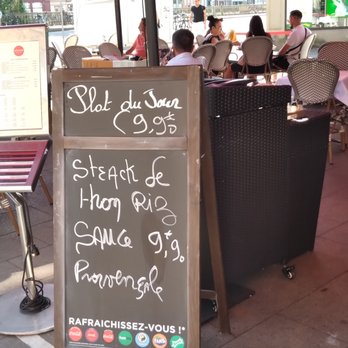 Plat du Jour
9,9€0
STEACK de
thon Riz
SAUCE 9,90
Provençale
RAFRAICHISSEZ-VOUS !*